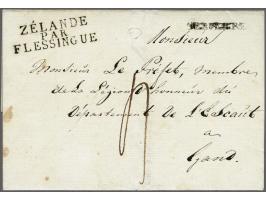 ZÉLANDE
PAR
FLESSINGUE
Monsieur
Monsieur Le Préfet, membre
de La Légion d'honneur du
Département de L'Escaut
a
Gand.